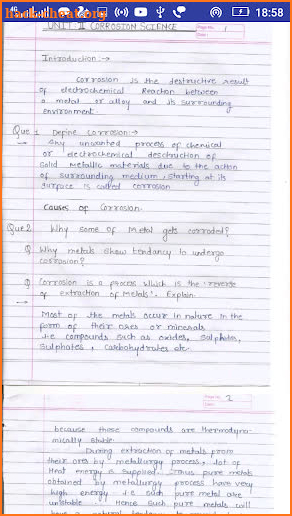 4G
18:58
UNIT: II CORROSION SCIENCE
Page No. 1
Date:
Introduction :→
Corrosion is the destructive result
of electrochemical Reaction between
a metal or alloy and its surrounding
environment.
Que 1 Define corrosion:→
→ Any unwanted process of chemical
or electrochemical destruction of
Solid Metallic materials due to the action
of surrounding medium, starting at its
surface is called corrosion
Causes of Corrosion
Que 2 Why some of Metal gets corroded?
Q Why metals show tendancy to undergo
corrosion?
Q Corrosion is a process which is the 'reverse
of extraction of Metals'. Explain
→
Most of the metals occur in nature in the
form of their ores or minerals
i.e compounds such as oxides, Sulphates,
Sulphates, Carbohydrates etc.
Page No. 2
Date:
because those compounds are thermodyna-
mically stable.
During extraction of metals from
their ores by metallurgy process, lot of
Heat energy is supplied. Thus pure metals
obtained by metallurgy process have very
high energy i.e such pure metal are
unstable. Hence such pure metals will
have a natural